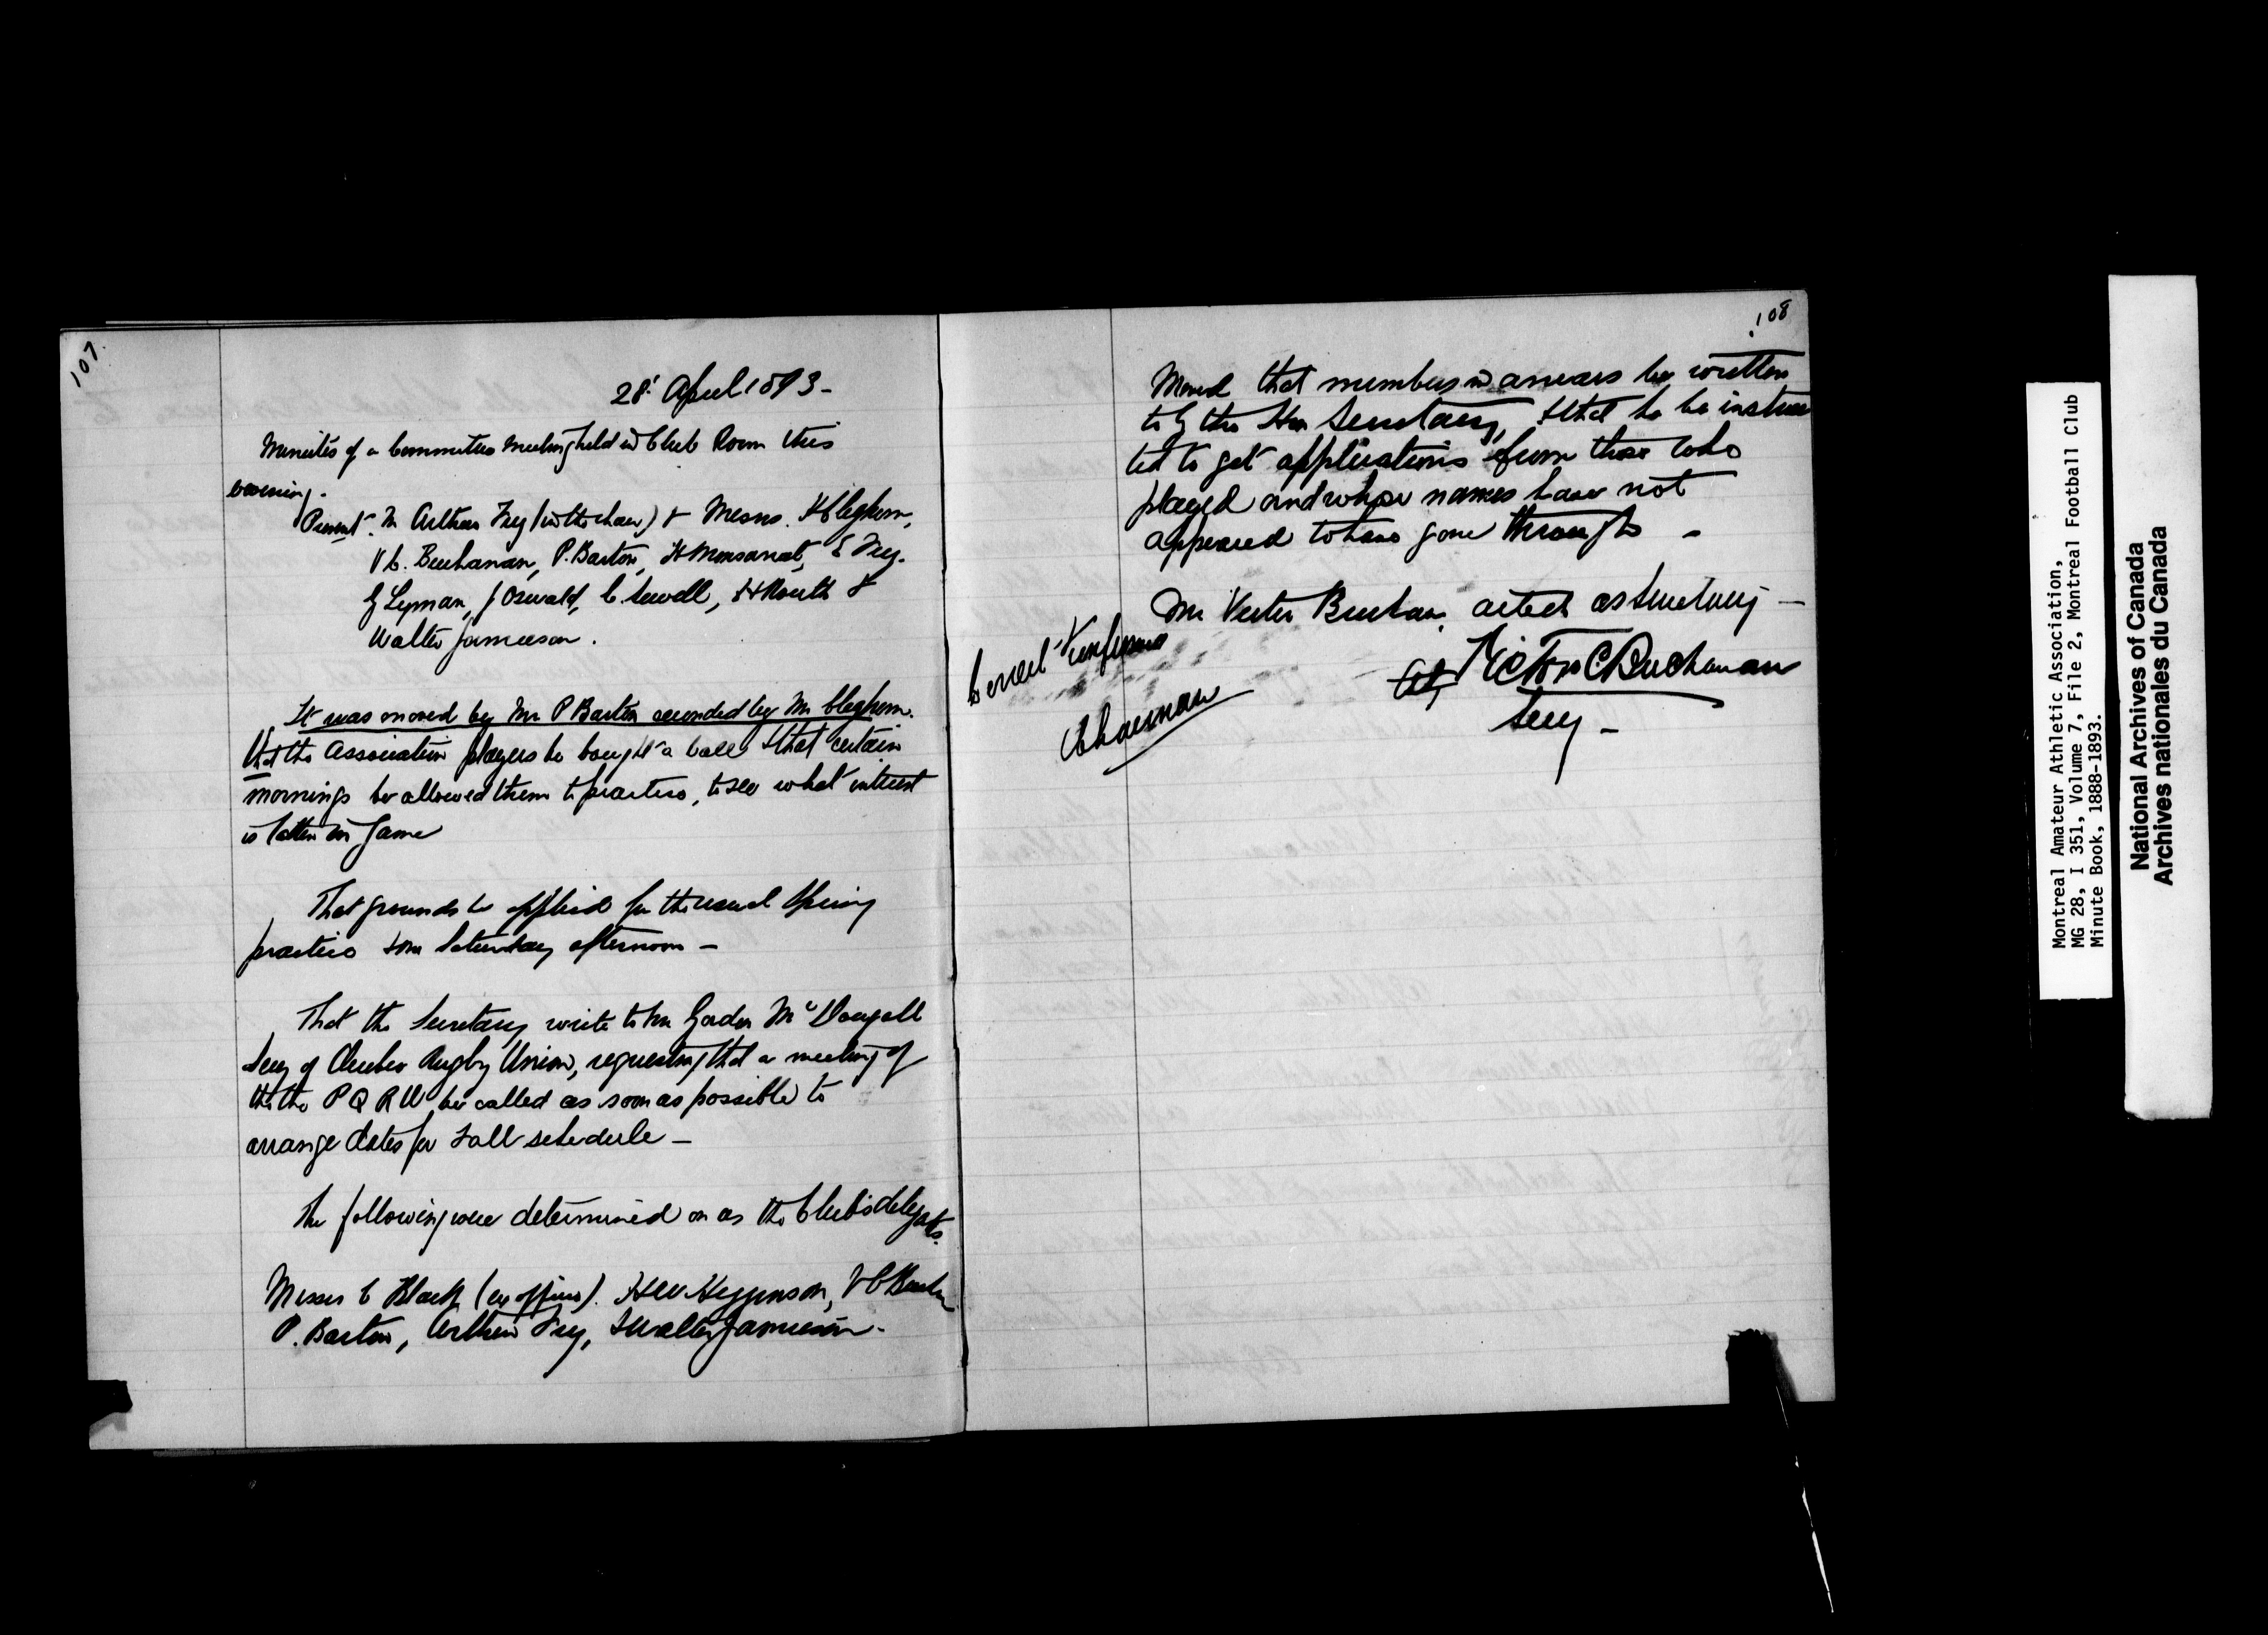 107.
28' April 1893 -
Minutes of a Committee Meeting held in Club Room this
evening.
Present. Mr Arthur Fry (in the chair) & Messrs. H Cleghorn,
V C. Buchanan, P. Barton, H Monsarrat, E Fry.
G Lyman, J Oswald, C. Sewell, H Routh &
Walter Jamieson.
It was moved by Mr P Barton seconded by Mr Cleghorn.
that the Association players be bought a ball & that certain
mornings be allowed them to practice, to see what interest
is taken in game
That grounds be applied for the usual Spring
practice & on Saturday afternoon -
That the Secretary write to Mr Gordon McDougall
Secy of Quebec Rugby Union, requesting that a meeting of
the P Q R U be called as soon as possible to
arrange dates for Fall schedule -
The following were determined on as the Club's delegates.
Messrs C Black (ex officio). H W Higginson, V C Buchan
P. Barton, Arthur Fry, & Walter Jamieson.
108
Moved that members in arrears be written
to by the Hon Secretary, & that he be instruc
ted to get applications from those who
played and whose names have not
appeared to have gone through -
Mr Victor Buchan acted as Secretary -
Correct & confirmed
Chairman
Victor C Buchanan
Secy -
Montreal Amateur Athletic Association,
MG 28, I 351, Volume 7, File 2, Montreal Football Club
Minute Book, 1888-1893.
National Archives of Canada
Archives nationales du Canada